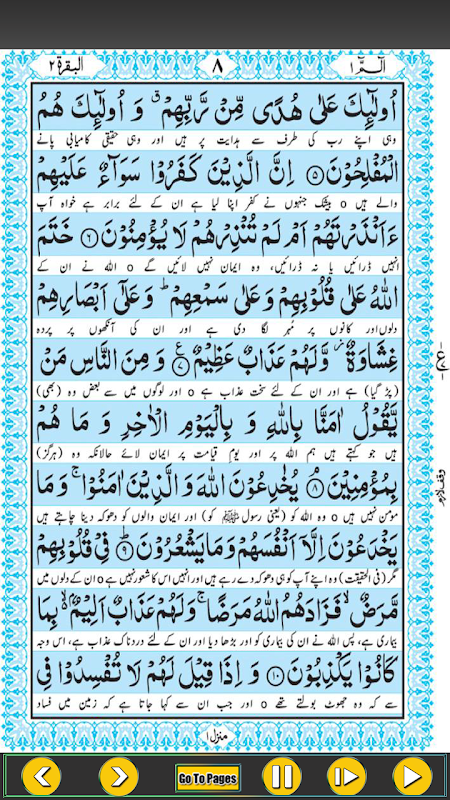 البقرة ٢ ٨ الٓمّٓ ١
اُولٰٓئِكَ عَلٰى هُدًى مِّنْ رَّبِّهِمْ ۗ وَ اُولٰٓئِكَ هُمُ
وہی اپنے رب کی طرف سے ہدایت پر ہیں اور وہی حقیقی کامیابی پانے
الْمُفْلِحُوْنَ ۝٥ اِنَّ الَّذِيْنَ كَفَرُوْا سَوَآءٌ عَلَيْهِمْ
والے ہیں o بیشک جنہوں نے کفر اپنا لیا ہے ان کے لئے برابر ہے خواہ آپ
ءَاَنْذَرْتَهُمْ اَمْ لَمْ تُنْذِرْهُمْ لَا يُؤْمِنُوْنَ ۝٦ خَتَمَ
انہیں ڈرائیں یا نہ ڈرائیں، وہ ایمان نہیں لائیں گے o اللہ نے ان کے
اللّٰهُ عَلٰى قُلُوْبِهِمْ وَعَلٰى سَمْعِهِمْ ؕ وَعَلٰٓى اَبْصَارِهِمْ
دلوں اور کانوں پر مُہر لگا دی ہے اور ان کی آنکھوں پر پردہ
غِشَاوَةٌ ۫ وَّلَهُمْ عَذَابٌ عَظِيْمٌ ۝٧ ع وَ مِنَ النَّاسِ مَنْ
(پڑ گیا) ہے اور ان کے لئے سخت عذاب ہے o اور لوگوں میں سے بعض وہ (بھی)
يَّقُوْلُ اٰمَنَّا بِاللّٰهِ وَ بِالْيَوْمِ الْاٰخِرِ وَ مَا هُمْ
ہیں جو کہتے ہیں ہم اللہ پر اور یومِ قیامت پر ایمان لائے حالانکہ وہ (ہرگز)
بِمُؤْمِنِيْنَ ۝٨ يُخٰدِعُوْنَ اللّٰهَ وَ الَّذِيْنَ اٰمَنُوْا ۚ وَمَا
مومن نہیں ہیں o وہ اللہ کو (یعنی رسول ﷺ کو) اور ایمان والوں کو دھوکہ دینا چاہتے ہیں
يَخْدَعُوْنَ اِلَّآ اَنْفُسَهُمْ وَمَا يَشْعُرُوْنَ ۝٩ فِيْ قُلُوْبِهِمْ
مگر (فی الحقیقت) وہ اپنے آپ کو ہی دھوکہ دے رہے ہیں اور انہیں اس کا شعور نہیں ہے o ان کے دلوں میں
مَّرَضٌ ۙ فَزَادَهُمُ اللّٰهُ مَرَضًا ۚ وَلَهُمْ عَذَابٌ اَلِيْمٌۢ ۙ بِمَا
بیماری ہے، پس اللہ نے ان کی بیماری کو اور بڑھا دیا اور ان کے لئے دردناک عذاب ہے، اس وجہ
كَانُوْا يَكْذِبُوْنَ ۝١٠ وَ اِذَا قِيْلَ لَهُمْ لَا تُفْسِدُوْا فِي
سے کہ وہ جھوٹ بولتے تھے o اور جب ان سے کہا جاتا ہے کہ زمین میں فساد
وقف لازم
منزل ١
Go To Pages